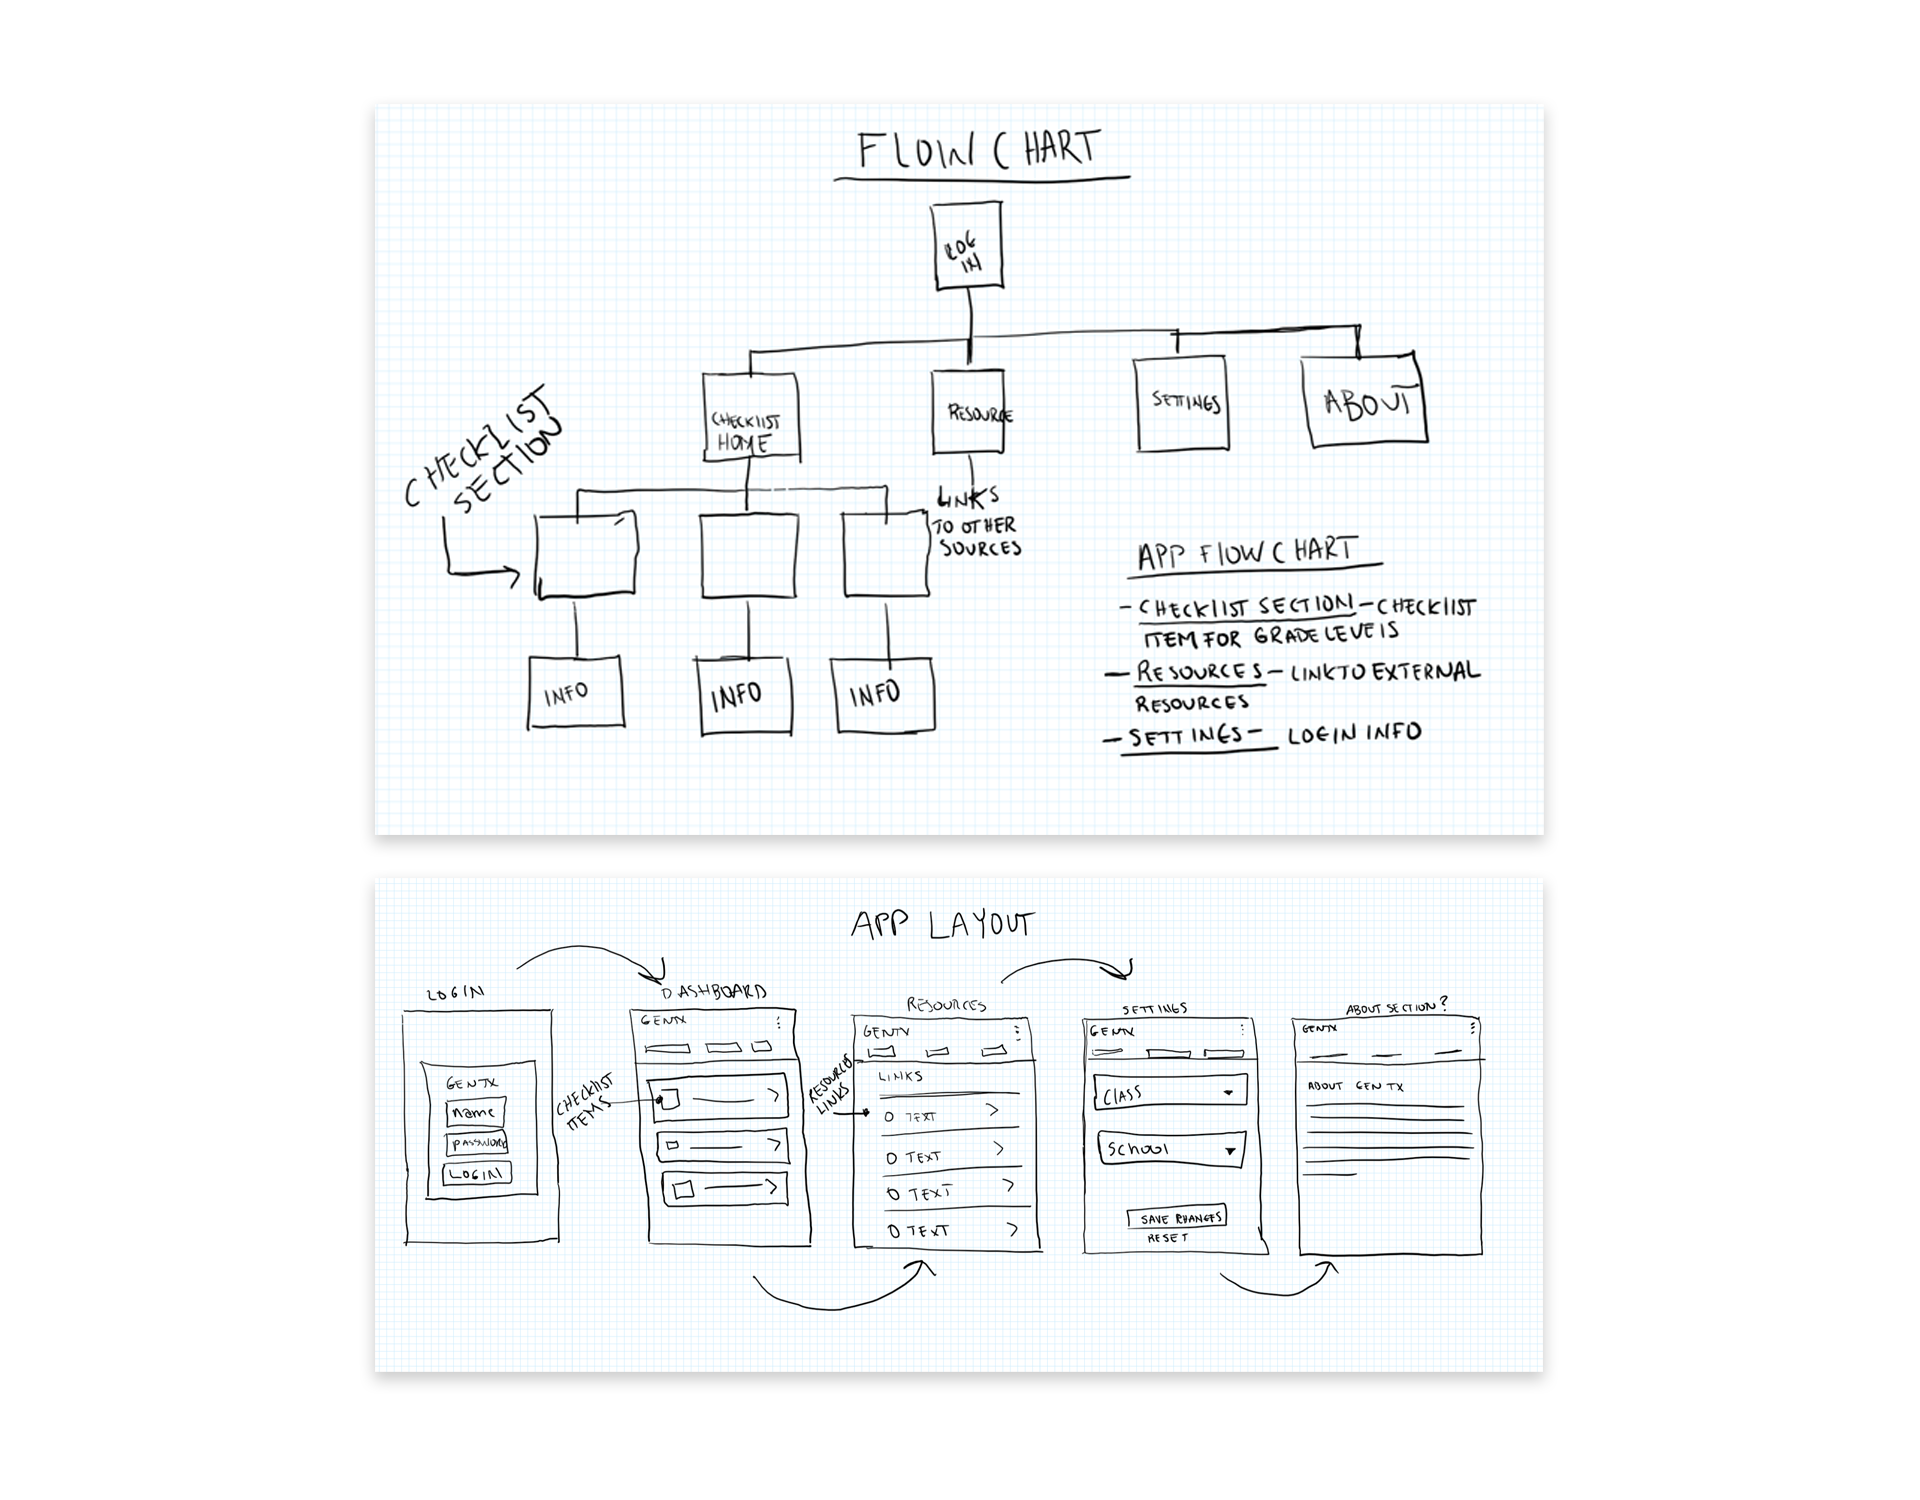 FLOW CHART
LOG
IN
CHECKLIST
HOME
RESOURCE
SETTINGS
ABOUT
CHECKLIST
SECTION
LINKS
TO OTHER
SOURCES
INFO
INFO
INFO
APP FLOWCHART
- CHECKLIST SECTION - CHECKLIST
ITEM FOR GRADE LEVELS
- RESOURCES - LINK TO EXTERNAL
RESOURCES
- SETTINGS - LOGIN INFO
APP LAYOUT
LOGIN
GENTX
name
PASSWORD
LOGIN
CHECKLIST
ITEMS
DASHBOARD
GENTX
RESOURCES
GENTX
RESOURCE
LINKS
LINKS
O TEXT >
O TEXT >
O TEXT >
O TEXT >
SETTINGS
GENTX
CLASS
School
SAVE CHANGES
RESET
ABOUT SECTION?
GENTX
ABOUT GEN TX